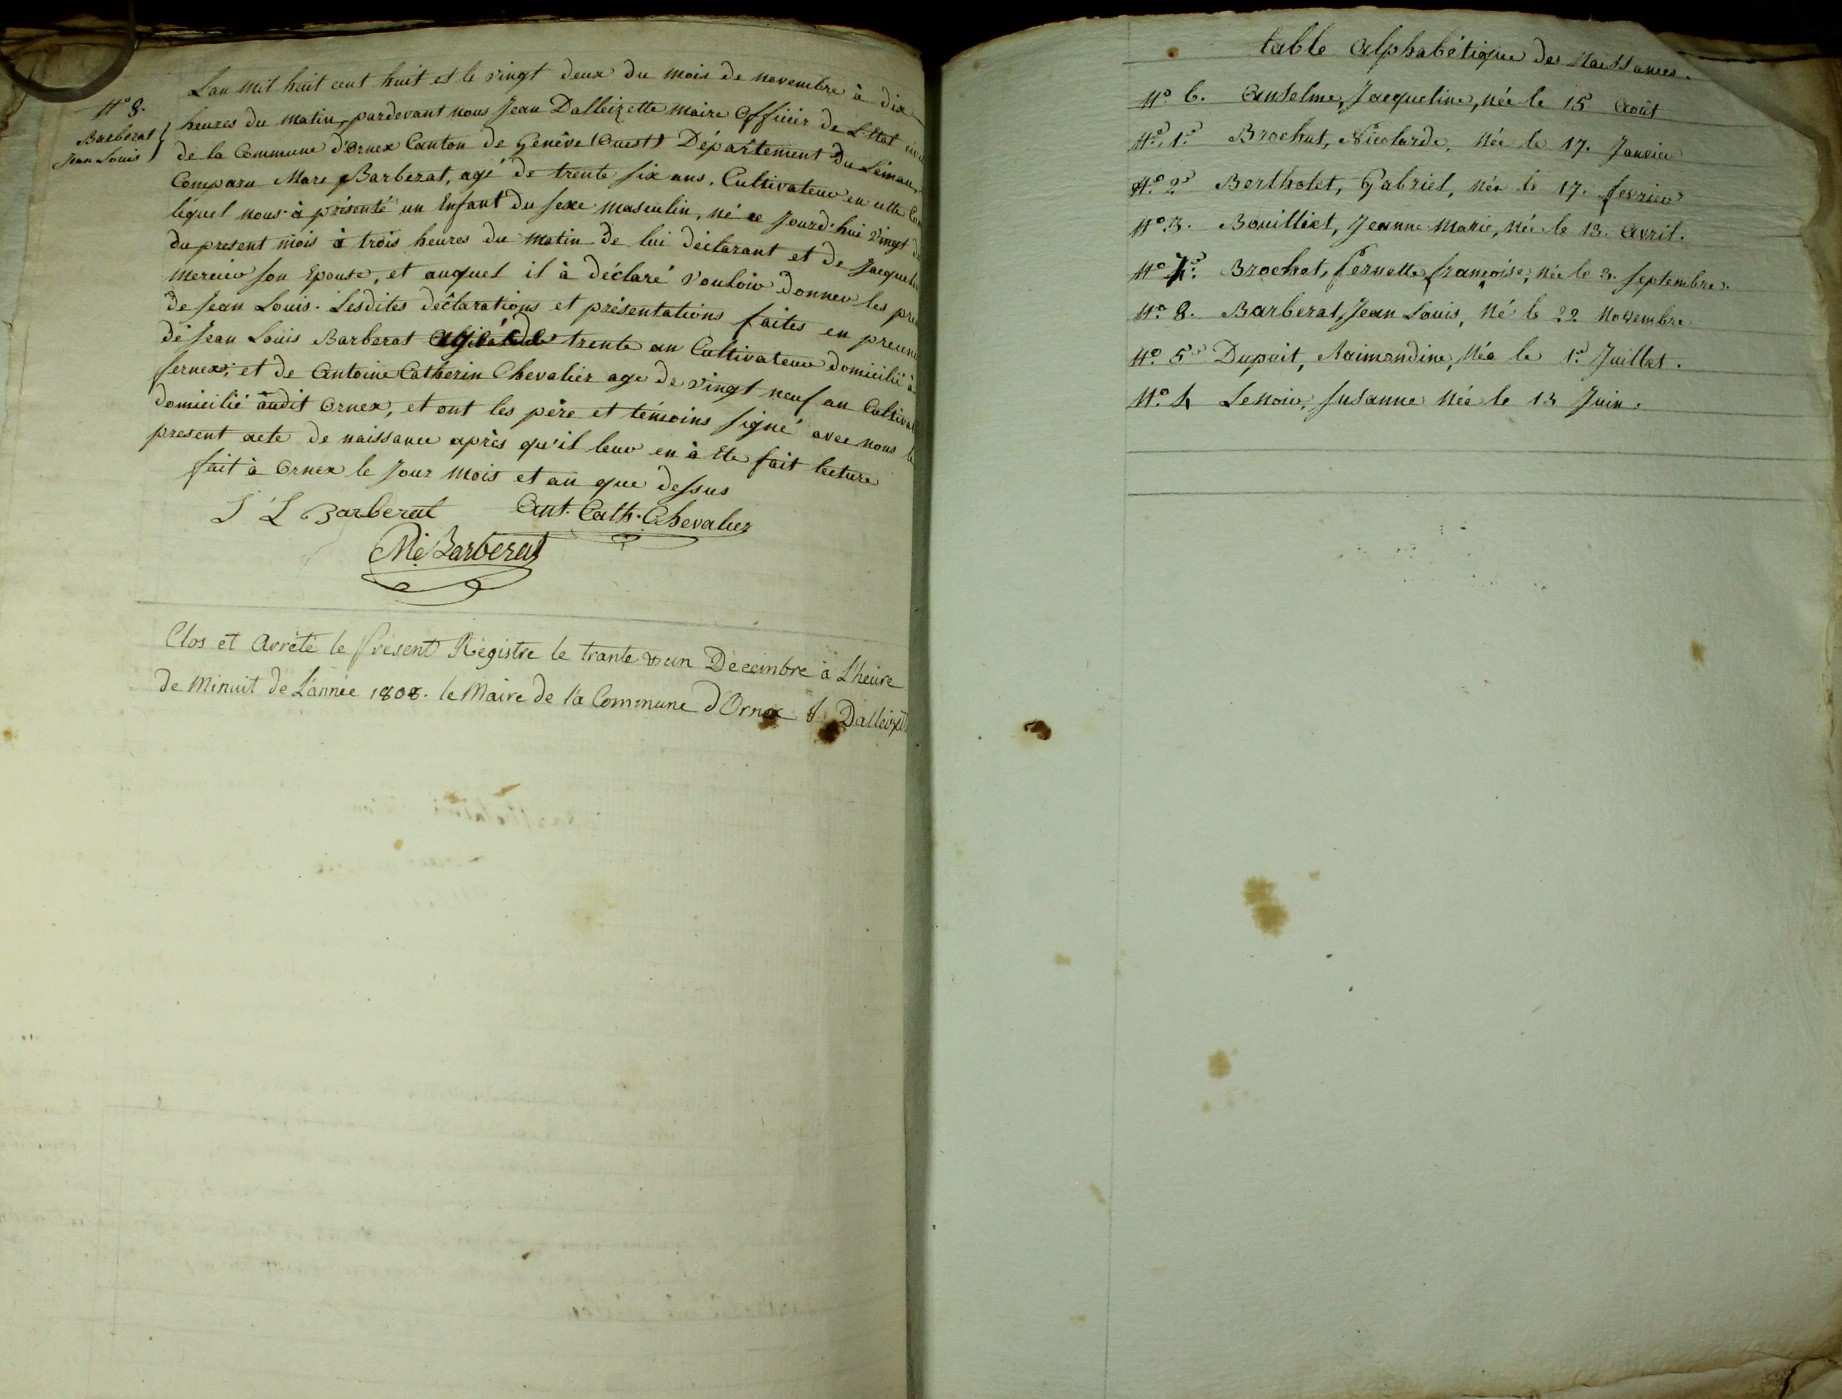 Lan mil huit cent huit et le vingt deux du mois de novembre à dix
N.o 8.
Barberat
Jean Louis
heures du matin, pardevant nous Jean Dalleizette maire officier de L'Etat
de la Commune d'Ornex Canton de Genêve (Ouest) Département du Léman,
Comparu Marc Barberat, agé de trente six ans, Cultivateur en cette
lequel nous à présenté un Enfant du sexe masculin, né ce jourd'hui vingt
du present mois à trois heures du matin de lui déclarant et de
Mercier son Epouse, et auquel il à déclaré vouloir donner les
de Jean Louis. Lesdites déclarations et présentations faites en
de Jean Louis Barberat agé de trente an Cultivateur domicilié à
fernex, et de Antoine Catherin Chevalier age de vingt neuf an
domicilié audit Ornex, et ont les père et témoins signé avec nous le
present acte de naissance après qu'il leur en à Ete fait lecture
fait à Ornex le Jour mois et an que dessus
J L Barberat Ant. Cath. Chevalier
Mc Barberat
Clos et Arrêté le Présent Régistre le trante un Décembre à Lheure
de Minuit de L'année 1808. le Maire de la Commune d'Ornex J. Dalleizette
table alphabétique des Naissances.
N.o 6. Anselme, Jacqueline, née le 15 Août
N.o 1. Brochut, Nicolarde, Née le 17. Janvier
N.o 2 Bertholet, Gabriel, née le 17. fevrier
N.o 3. Bouilliet, Jeanne Marie, née le 13. avril.
N.o 7. Brochet, Pernette françoise, née le 3. septembre.
N.o 8. Barberat, Jean Louis, Né le 22 Novembre
N.o 5 Dupuit, Raimondine, Née le 1. Juillet.
N.o 4 Lenoir, Susanne Née le 13 Juin.